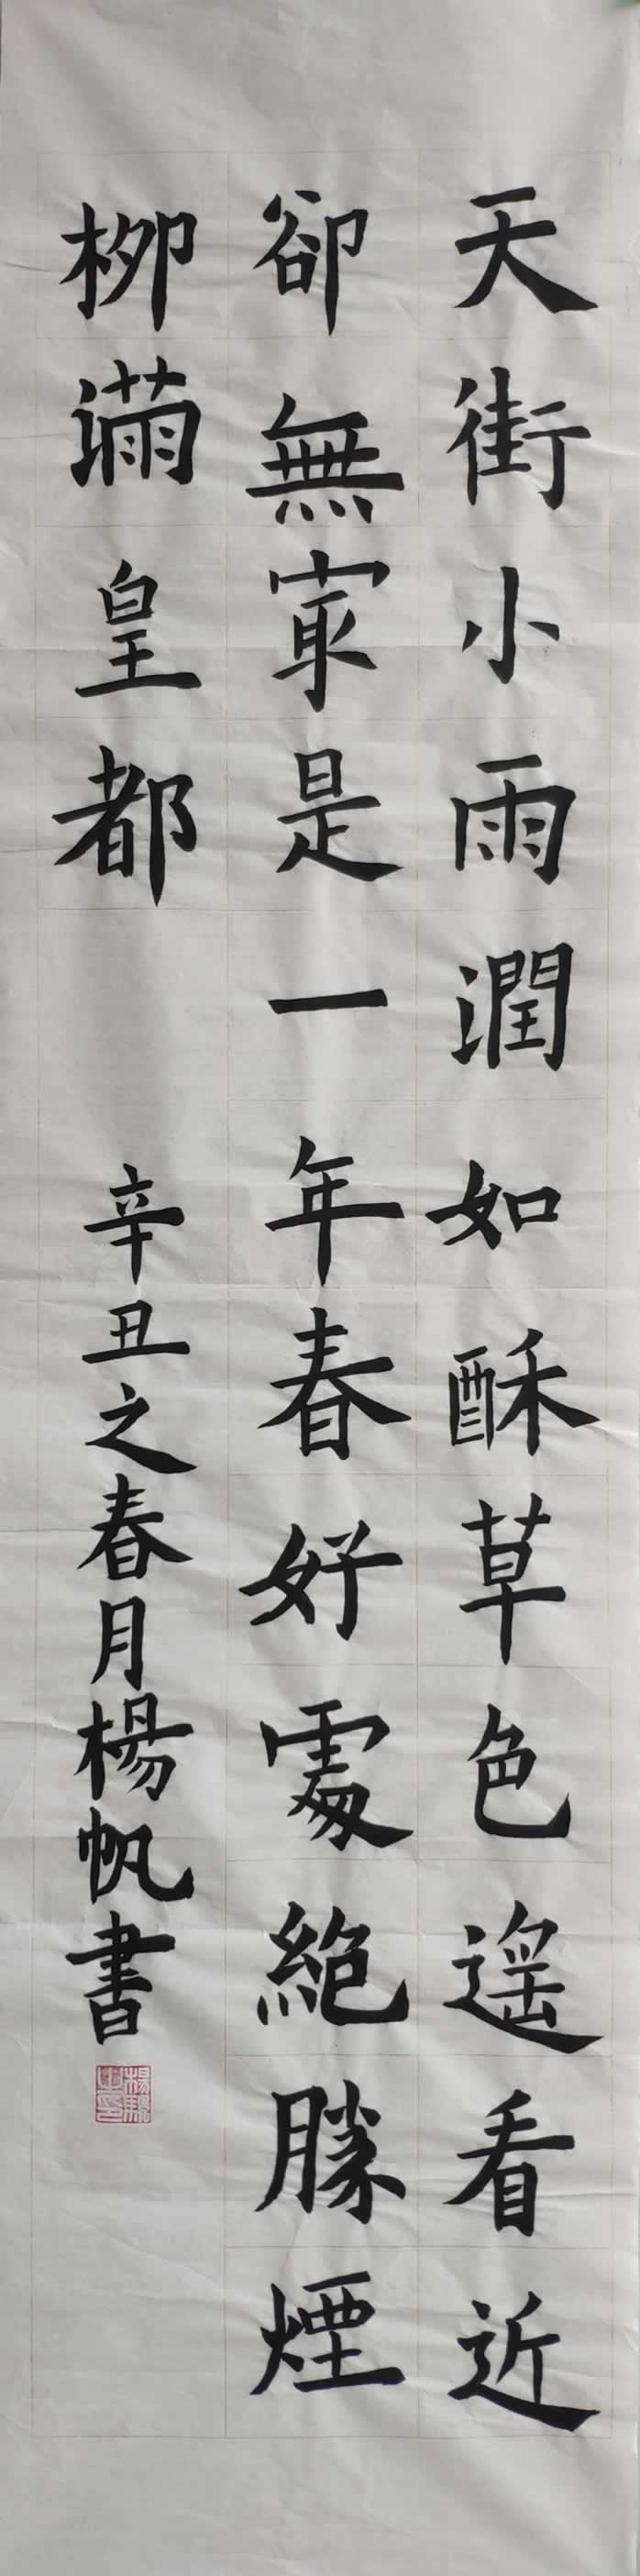 天街小雨潤如酥草色遥看近
卻無冣是一年春好處絶勝煙
柳滿皇都
辛丑之春月楊帆書